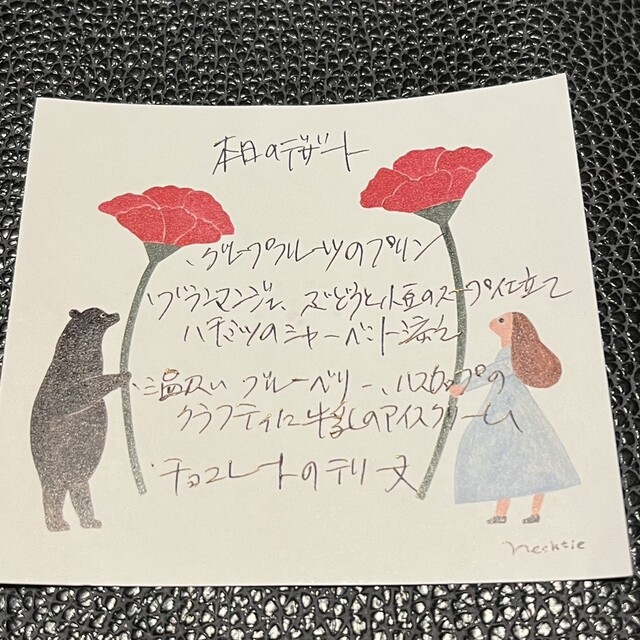 本日のデザート
、グレープフルーツのプリン
、ブランマンジェ、ぶどうと小豆のスープ仕立て
ハチミツのシャーベット添え
、温かい ブルーベリー、ハスカップの
クラフティに牛乳のアイスクリーム
・チョコレートのテリーヌ
necktie